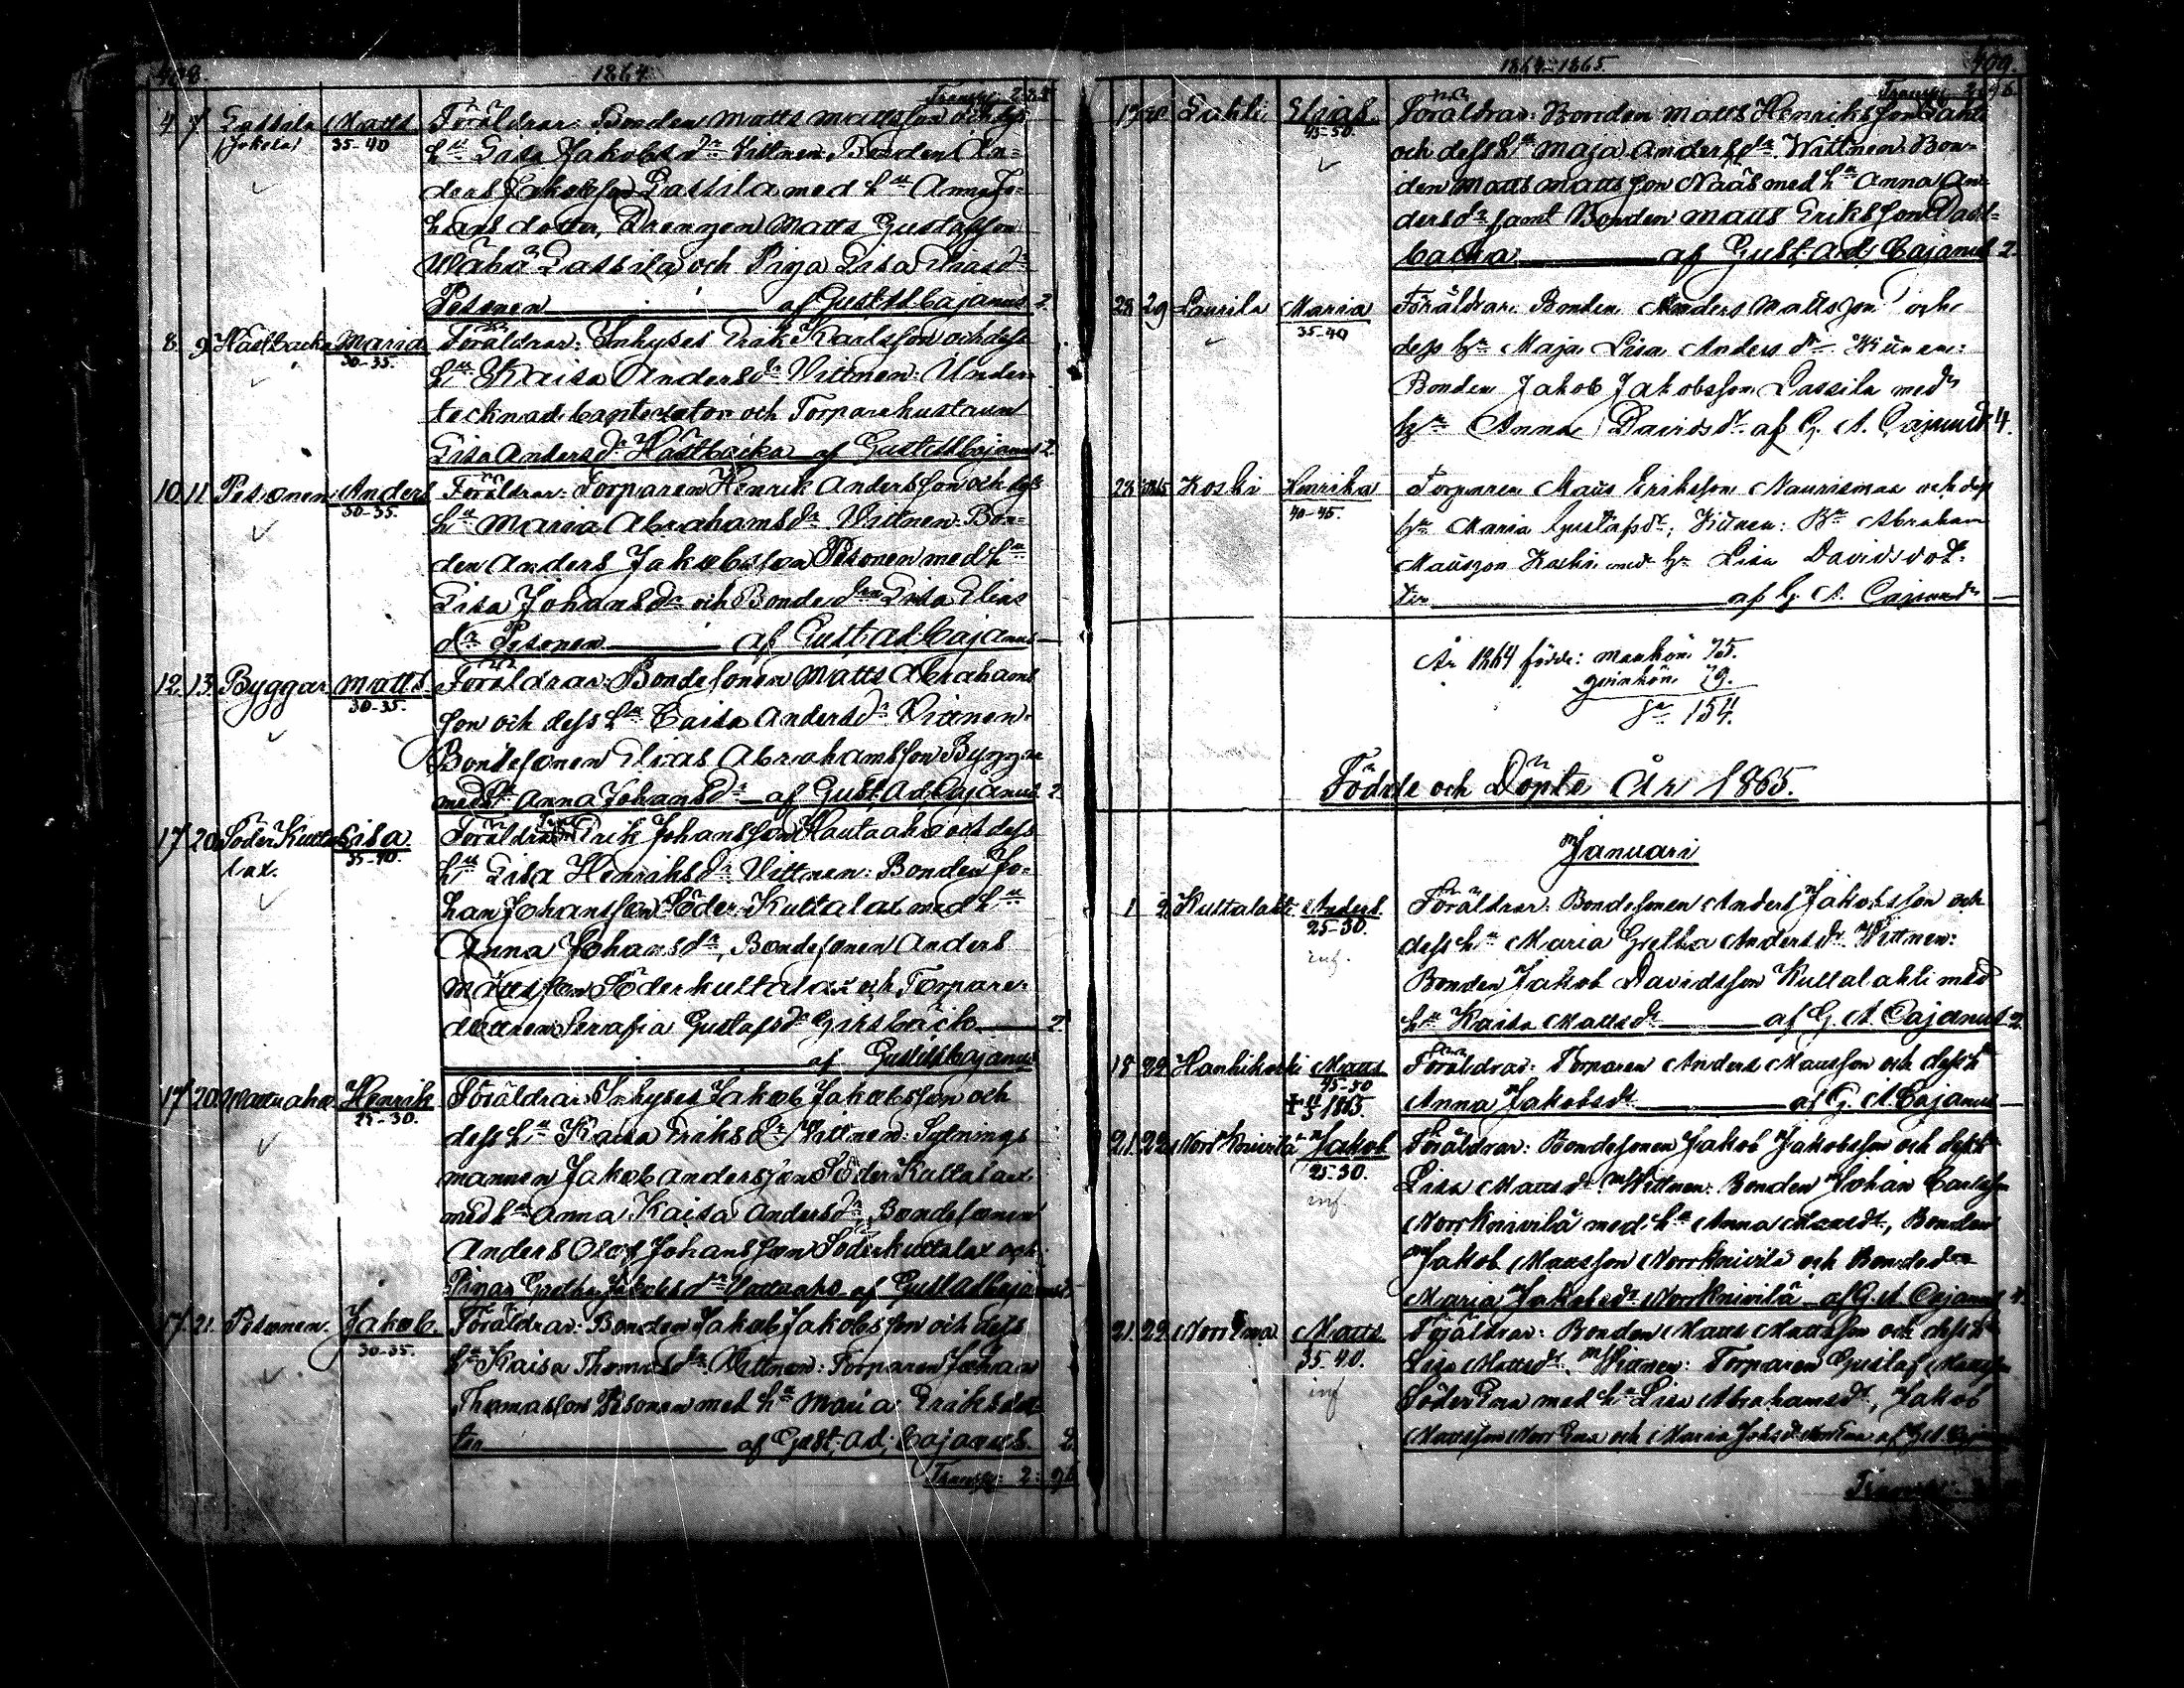 408.
1864.
Transp. 2.88
4 7 Lassila Matts Föräldrar: Bonden Matts Mattsson och dess
(Jokela) 35-40 hu Lisa Jakobsdr Vittnen: Bonden An-
ders Jakobsson Lassila med hu Anna Jo-
hansdotter, Drengen Matts Gustafsson
Wähä Lassila och Piga Lisa
Pesonen af Gust Ad Cajanus 2.
8. 9. Hästbacka Maria Föräldrar: Inhyses Erik Karlsson och dess
30-35. hu Kaisa Andersdr Vittnen: Under-
tecknad baptisator och Torparehustrun
Lisa Andersdr Hästbacka af Gust Ad Cajanus 2
10. 11 Pesonen Anders Föräldrar: Torparen Henrik Andersson och dess
30-35. hu Maria Abrahamsdr Vittnen: Bon-
den Anders Jakobsson Pesonen med hu
Lisa Johansdr och Bondedn Lisa Elias
dr Pesonen af Gust Ad Cajanus
12. 13. Byggar Matts Föräldrar: Bondesonen Matts Abrahams
30-35. son och dess hu Caisa Andersdr Vittnen:
Bondesonen Elias Abrahamsson Byggar
med hu Anna Johansdr af Gust Ad Cajanus 2.
17 20 Söder Kutta Lisa Föräldrar: Erik Johansson Hautaaho och dess
lax. 35-40. hu Lisa Henriksdr Vittnen: Bonden Jo-
han Johansson Söder Kuttalax med hu
Anna Johansdr, Bondesonen Anders
Mattsson Söderkuttalax och Torpare-
dottren Serafia Gustafsdr 2
af Gust Ad Cajanus
17 20 Henrik Föräldrar: Inhyses Jakob Jakobsson och
25-30. dess hu Kaisa Eriksdr Vittnen: Sytnings
mannen Jakob Andersson Söder Kuttalax
med hu Anna Kaisa Andersdr, Bondesonen
Anders Johansson Söderkuttalax och
Pigan Greta Jakobsdr af Gust Ad Cajanus
17. 21. Pesonen. Jakob. Föräldrar: Bonden Jakob Jakobsson och dess
30-35. hu Kaisa Thomasdr. Vittnen: Torparen Johan
Thomasson Pesonen med hu Maria Eriksdot-
ter af Gust. Ad. Cajanus 2.
Transp. 2: 96
1864-1865. 409.
Transp. 2:96.
Lahti Elias Föräldrar: Bonden Matts Henriksson Lahti
45-50. och dess hu Maja Andersdr. Wittnen Bon-
den Matts Mattsson Nääs med hu Anna An-
dersdr samt Bonden Matts Eriksson
backa af Gust Ad Cajanus 2.
28 29 Laurila Maria Föräldrar: Bonden Anders Mattsson och
35-40 dess hu Maja Lisa Andersdr Wittnen:
Bonden Jakob Jakobsson Lassila med
hu Anna Davidsdr. af G. A. Cajanus 4.
28 Koski Henrika Torparen Matts Eriksson och dess
40-45. hu Maria Gustafsdr; Vittnen: Bn Abraham
Mattsson Koski med hu Lisa Davidsdot-
ter af G. A. Cajanus
År 1864 födde: mankön 75.
qvinkön 79.
Sa 154.
Födde och Döpte År 1865.
Januari
1 2 Kuttalahti Anders Föräldrar: Bondesonen Anders Jakobsson och
25-30. dess hu Maria Gretha Andersdr Wittnen:
inf. Bonden Jakob Davidsson Kuttalahti med
hu Kaisa Mattsdr af G. A. Cajanus 2.
18 22 Hanhikoski Matts Föräldrar: Torparen Anders Mattsson och dess hu
45-50 Anna Jakobsdr af G. A. Cajanus
1865.
21. 22 Norr Knivilä Jakob Föräldrar: Bondesonen Jakob Jakobsson och dess hu
25-30. Lisa Mattsdr Wittnen: Bonden Johan Carlsson
inf. Norrknivilä med hu Anna Mattsdr, Bonden
Jakob Mattsson Norrknivilä och Bondedn
Maria Jakobsdr Norrknivilä af G. A. Cajanus 4.
21. 22 Norr Ena Matts Föräldrar: Bonden Matts Mattsson och dess hu
35-40. Lisa Mattsdr Wittnen: Torparen Gustaf Mattsson
inf Söder Ena med hu Lisa Abrahamsdr, Jakob
Mattsson Norr Ena och Maria Jakobsdr Norr Ena af G. A. Cajanus
Transp.